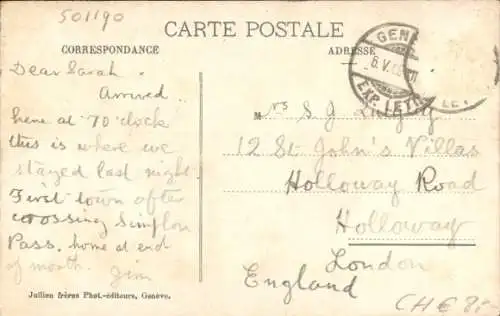 501190
CARTE POSTALE
CORRESPONDANCE
ADRESSE
GEN
6.V.
EXP. LET
LET
Dear Sarah
Arrived
here at 7 O'clock
this is where we
stayed last night.
First town after
crossing Simplon
Pass. home at end
of month. Jim
Mrs S G
12 St. John's Villas
Holloway Road
Holloway
London
England
Jullien frères Phot.-éditeurs, Genève.
CH € 8,-